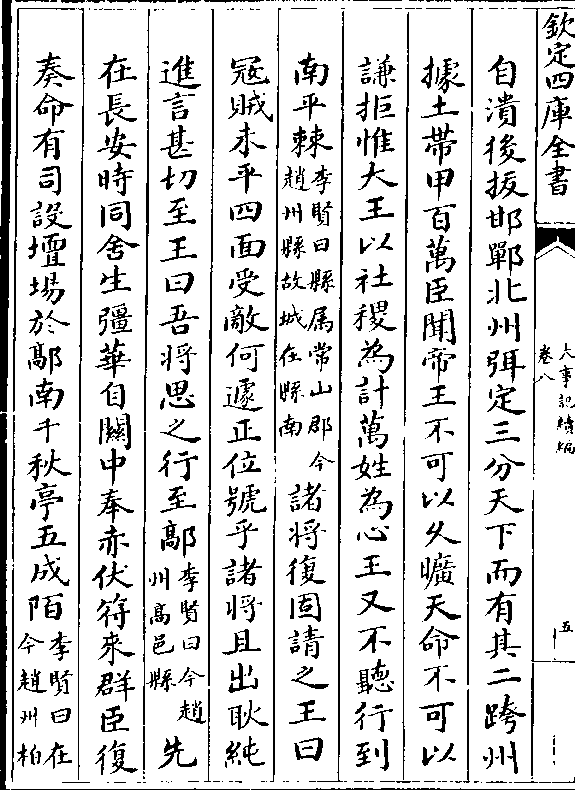 欽定四庫全書
大事記續編
卷八
五
自潰後拔邯鄲北州弭定三分天下而有其二跨州
據土帶甲百萬臣聞帝王不可以久曠天命不可以
謙拒惟大王以社稷為計萬姓為心王又不聽行到
南平棘李賢曰縣属常山郡今趙州縣故城在縣南諸將復固請之王曰
冦賊未平四面受敵何遽正位號乎諸將且出耿純
進言甚切至王曰吾將思之行至鄗李賢曰今趙州高邑縣先
在長安時同舍生彊華自關中奉赤伏符來群臣復
奏命有司設壇場於鄗南千秋亭五成陌李賢曰在今趙州柏